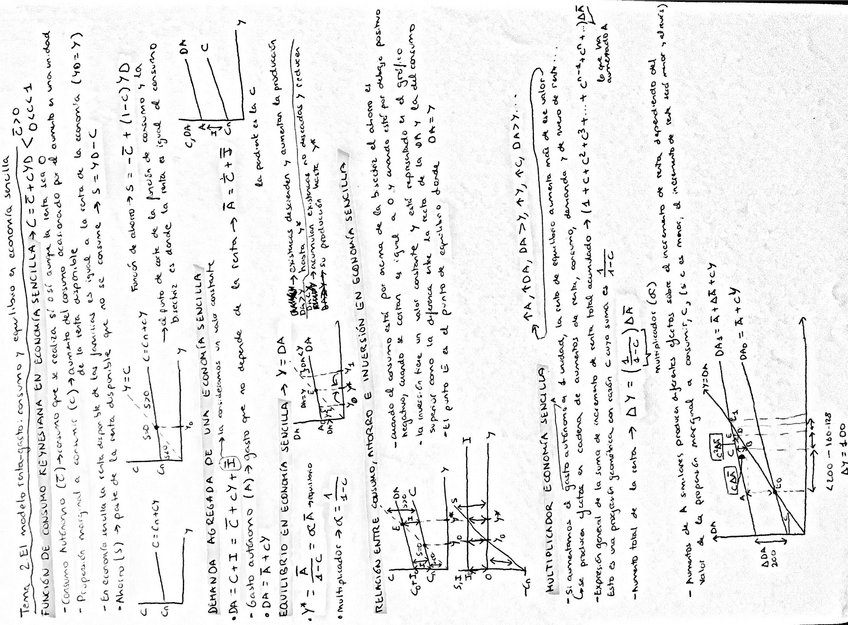 Tema 2 El modelo renta-gasto: consumo y equilibrio en economía sencilla
FUNCIÓN DE CONSUMO KEYNESIANA EN ECONOMÍA SENCILLA → C = C̄ + cYD < C̄>0
0<c<1
- Consumo Autónomo (C̄) → consumo que se realiza sí o sí aunque la renta sea 0
- Propensión marginal a consumir (c) → aumento del consumo ocasionado por el aumento en una unidad de la renta disponible
- En economía sencilla la renta disponible de las familias es igual a la renta de la economía (YD = Y)
- Ahorro (S) → parte de la renta disponible que no se consume → S = YD - C
C
C = Cn + cY
Cn
Y
C
Y = C
S<0
S>0
C = Cn + cY
Cn
Y0
Y
Función de ahorro → S = -C̄ + (1-c)YD
→ el punto de corte de la función de consumo y la
bisectriz es donde la renta es igual al consumo
DEMANDA AGREGADA DE UNA ECONOMÍA SENCILLA
• DA = C + I = C̄ + cY + Ī → la consideramos un valor constante
- Gasto autónomo (A) → gasto que no depende de la renta → Ā = C̄ + Ī
• DA = Ā + cY
la pendiente es la c
C, DA
DA
C
A
Cn
Y
EQUILIBRIO EN ECONOMÍA SENCILLA → Y = DA
• Y* = Ā/1-c = αĀ → equilibrio
• Multiplicador → α = 1/1-c
DA
Y=DA
E
Y* Y1
→ existencias descienden y aumentan la producción
hasta Y*
→ acumulan existencias no deseadas y reducen
su producción hasta Y*
RELACIÓN ENTRE CONSUMO, AHORRO E INVERSIÓN EN ECONOMÍA SENCILLA
- cuando el consumo está por encima de la bisectriz el ahorro es
negativo, cuando se cortan es igual a 0 y cuando está por debajo positivo
- la inversión tiene un valor constante y está representado en el gráfico
superior como la diferencia entre la recta de la DA y la del consumo
- El punto E es el punto de equilibrio donde DA = Y
C
DA
C
E
Y
S, I
S
I
O
Y0
Y*
Y
-Cn
MULTIPLICADOR ECONOMÍA SENCILLA
→ ↑A, ↑DA, DA>Y, ↑Y, ↑C, DA>Y...
- Si aumentamos el gasto autónomo en 1 unidad, la renta de equilibrio aumenta más de ese valor
(se producen efectos en cadena de aumentos de renta, consumo, demanda y de nuevo de renta...
- Expresión general de la suma de incremento de renta total acumulado → (1 + c + c² + c³ + ... + cⁿ⁻¹ + cⁿ + ...)ΔĀ
lo que ha
aumentado A
Esto es una progresión geométrica con razón c cuya suma es 1/1-c
- Aumento total de la renta → ΔY = (1/1-c)ΔĀ
multiplicador (α)
- Aumentos de A similares producen diferentes efectos sobre el incremento de renta dependiendo del
valor de la propensión marginal a consumir, c, (si c es menor, el incremento de renta será menor y al revés)
DA
Y=DA
DA1 = Ā + ΔĀ + cY
DA0 = Ā + cY
cΔĀ
c²ΔĀ
E0
E1
ΔDA
200
200 - 160 - 128